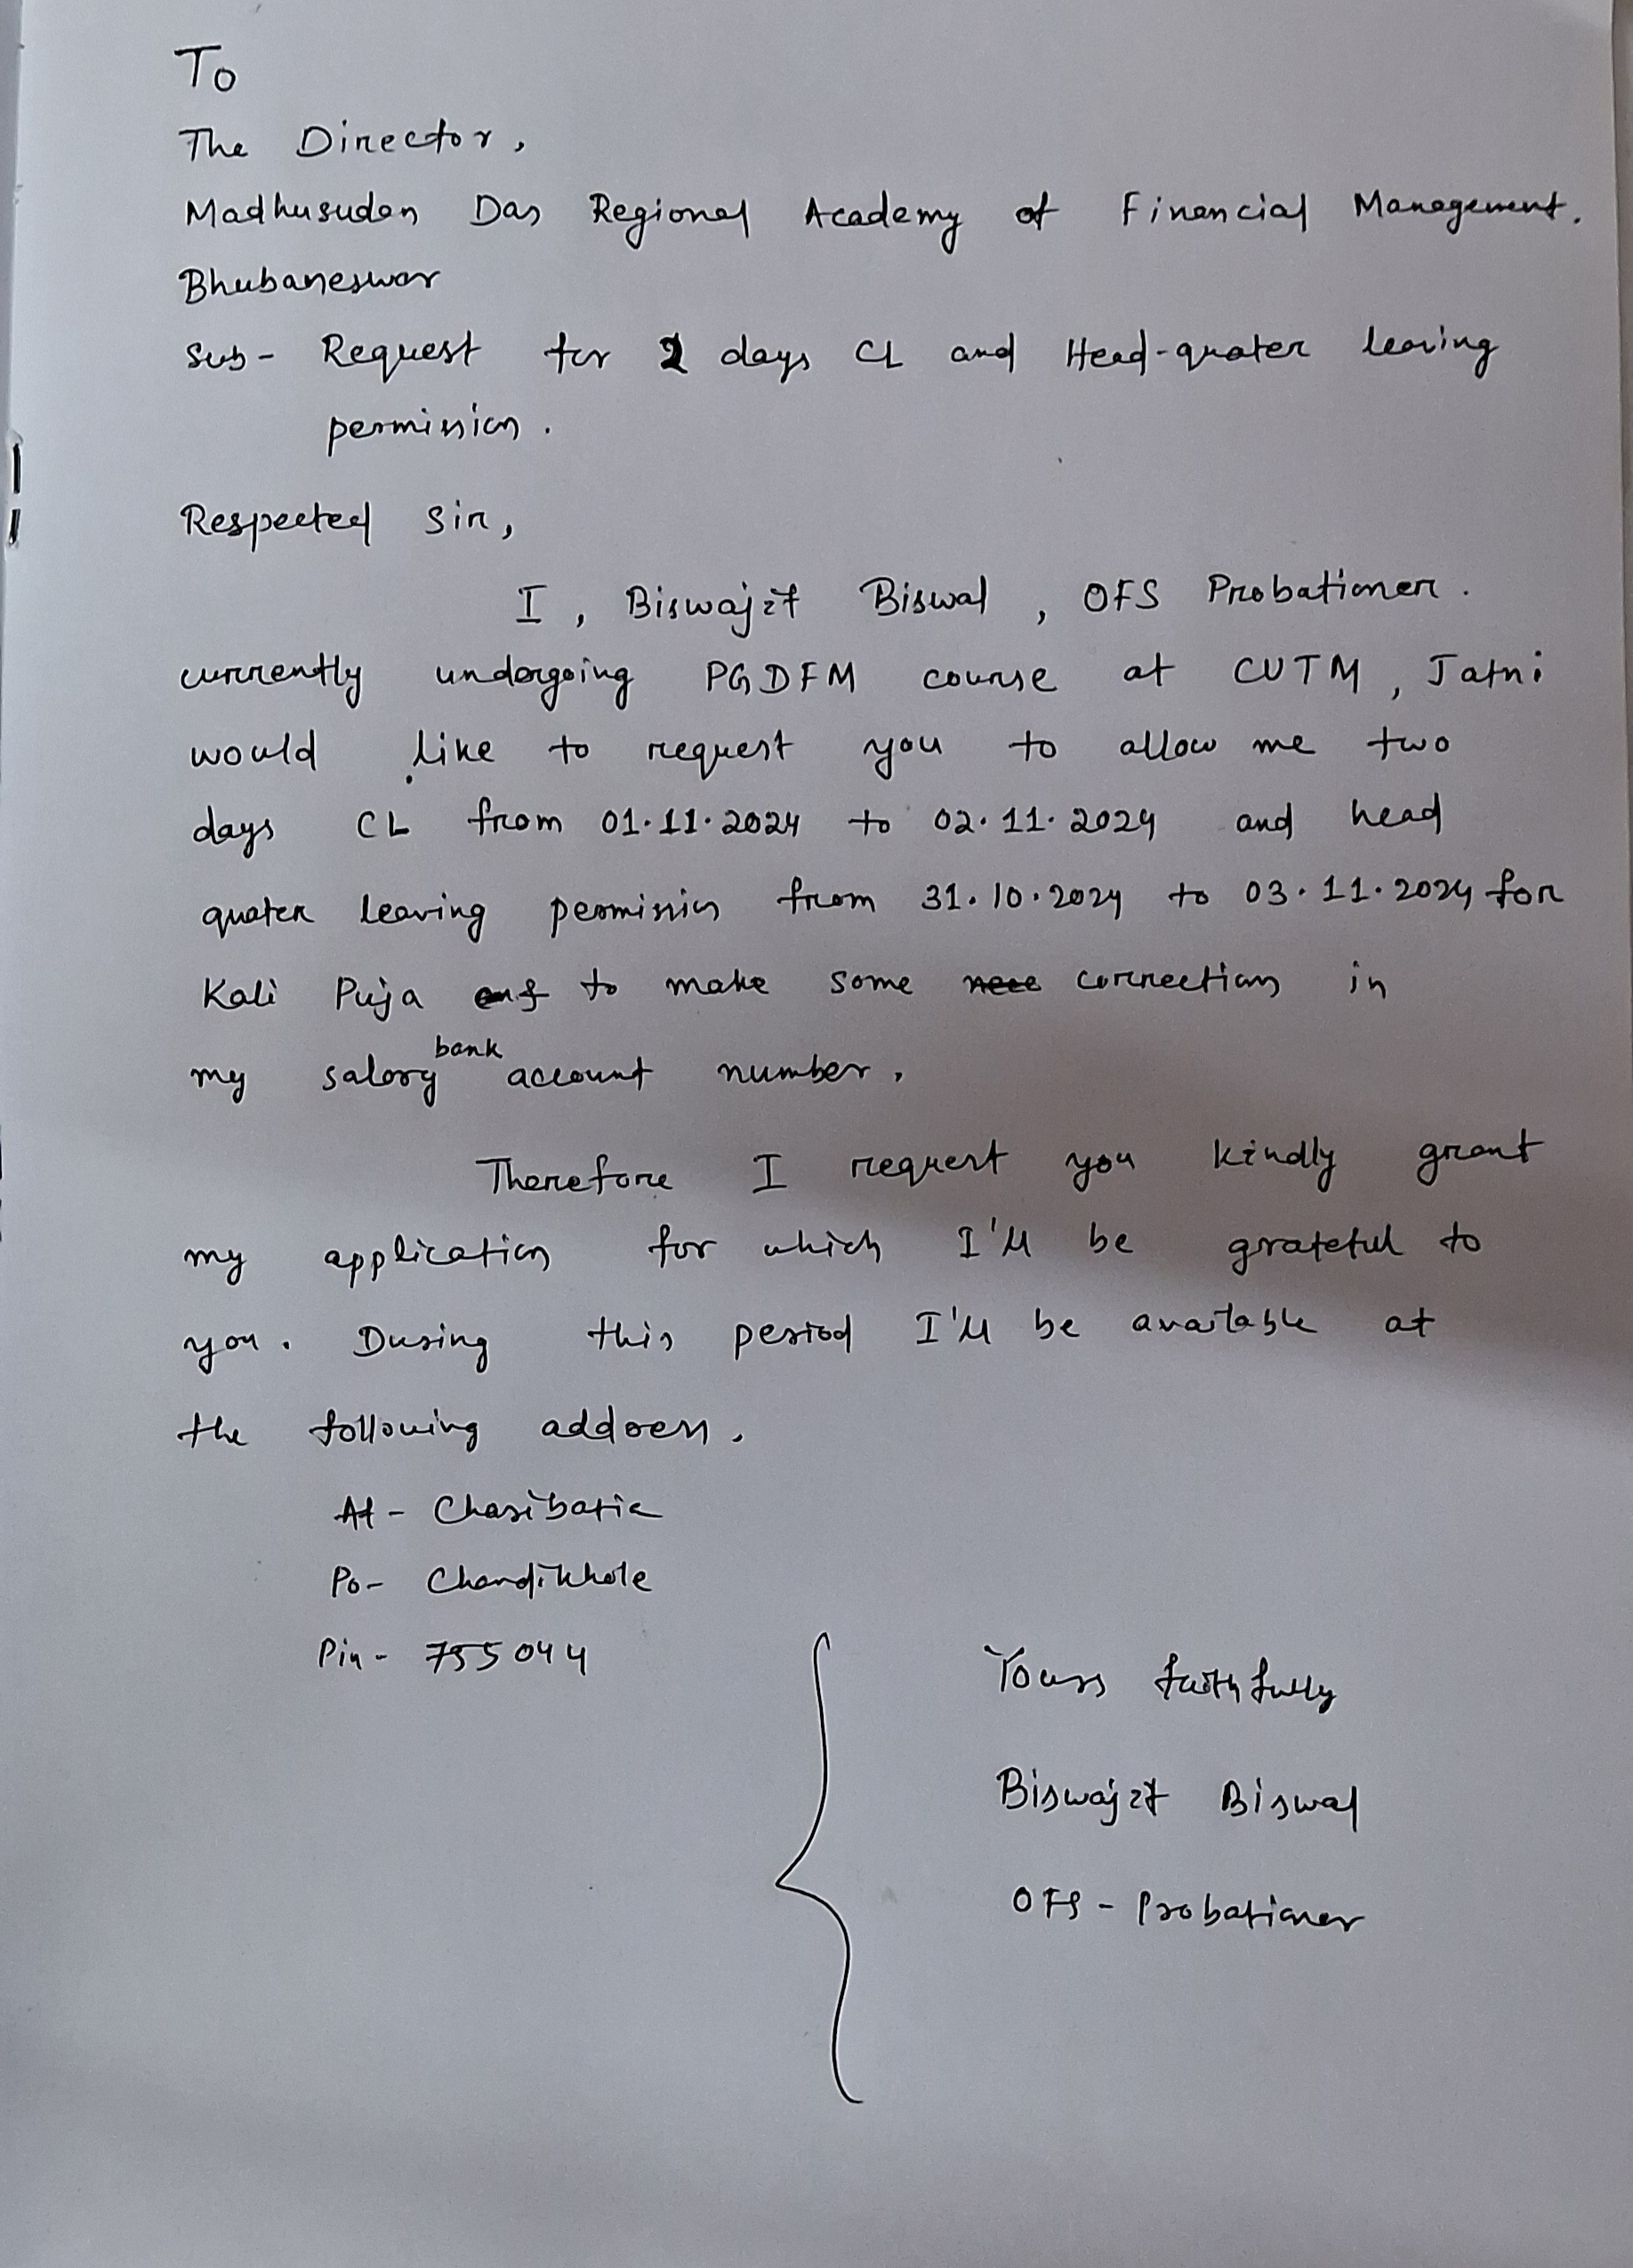 To
The Director,
Madhusudan Das Regional Academy of Financial Management.
Bhubaneswar
Sub- Request for 2 days CL and Head-quater leaving
permission.
Respected Sir,
I, Biswajit Biswal, OFS Probationer.
currently undergoing PGDFM course at CUTM, Jatni
would like to request you to allow me two
days CL from 01.11.2024 to 02.11.2024 and head
quater leaving permission from 31.10.2024 to 03.11.2024 for
Kali Puja to make some correction in
my salary bank account number.
Therefore I request you kindly grant
my application for which I'll be grateful to
you. During this period I'll be available at
the following address.
At- Charibatia
Po- Chandikhole
Pin- 755044
Yours faithfully
Biswajit Biswal
OFS - Probationer